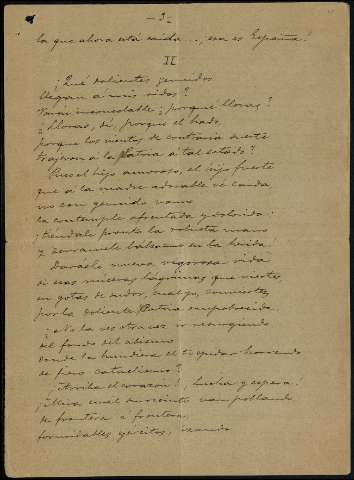 — 3 —
la que ahora está caida..., esa es España!
II
¿Qué dolientes gemidos
llegan á mis oidos?
inconsolable ¿porqué lloras?
¿Lloras, di, porque el hado,
porque los vientos de contraria suerte
trajeron á la Patria á tal estado?
Pues el hijo amoroso, el hijo fuerte
que á la madre adorable vé caida,
no con gemido vano
la contemple afrentada y dolorida:
¡tiéndale pronto la robusta mano
y derrámele bálsamo en la herida!
Darásle nueva vigorosa vida
si esas míseras lágrimas que viertes
en gotas de sudor, luego, conviertes
por la doliente Patria empobrecida.
¿No la ves otra vez ir resurgiendo
del fondo del abismo
donde la hundiera el horrendo
de fiero cataclismo?
¡Arriba el corazón!, lucha y espera!
¡Mira cuál
de frontera á frontera,
formidables ejércitos,